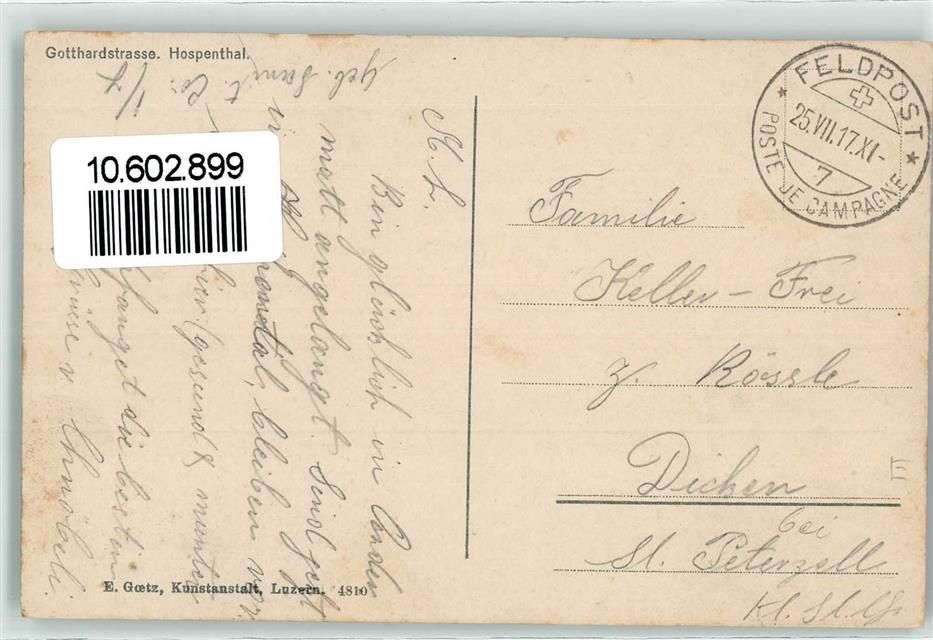 Gotthardstrasse. Hospenthal.
FELDPOST
25.VII.17.XI-
7
POSTE DE CAMPAGNE
10.602.899
M. L.
Bin glücklich in Ander
matt angelangt. Sind jetzt
in Hospental, bleiben vor
hier (gesund & munter
Empfanget die besten
Grüsse v.
Geb. Sanit. Co.
1/7
Familie
Keller-Frei
z. Rössle
Dicken
bei
St. Peterzell
Kt. St. G.
E. Gœtz, Kunstanstalt, Luzern. 4810
E